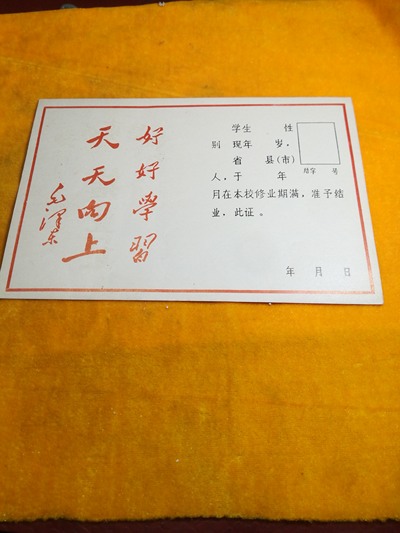 好好學習
天天向上
毛泽东
学生 性
别 现年 岁,
省 县(市)
人,于 年
月在本校修业期满,准予结
业,此证。
结字 号
年 月 日